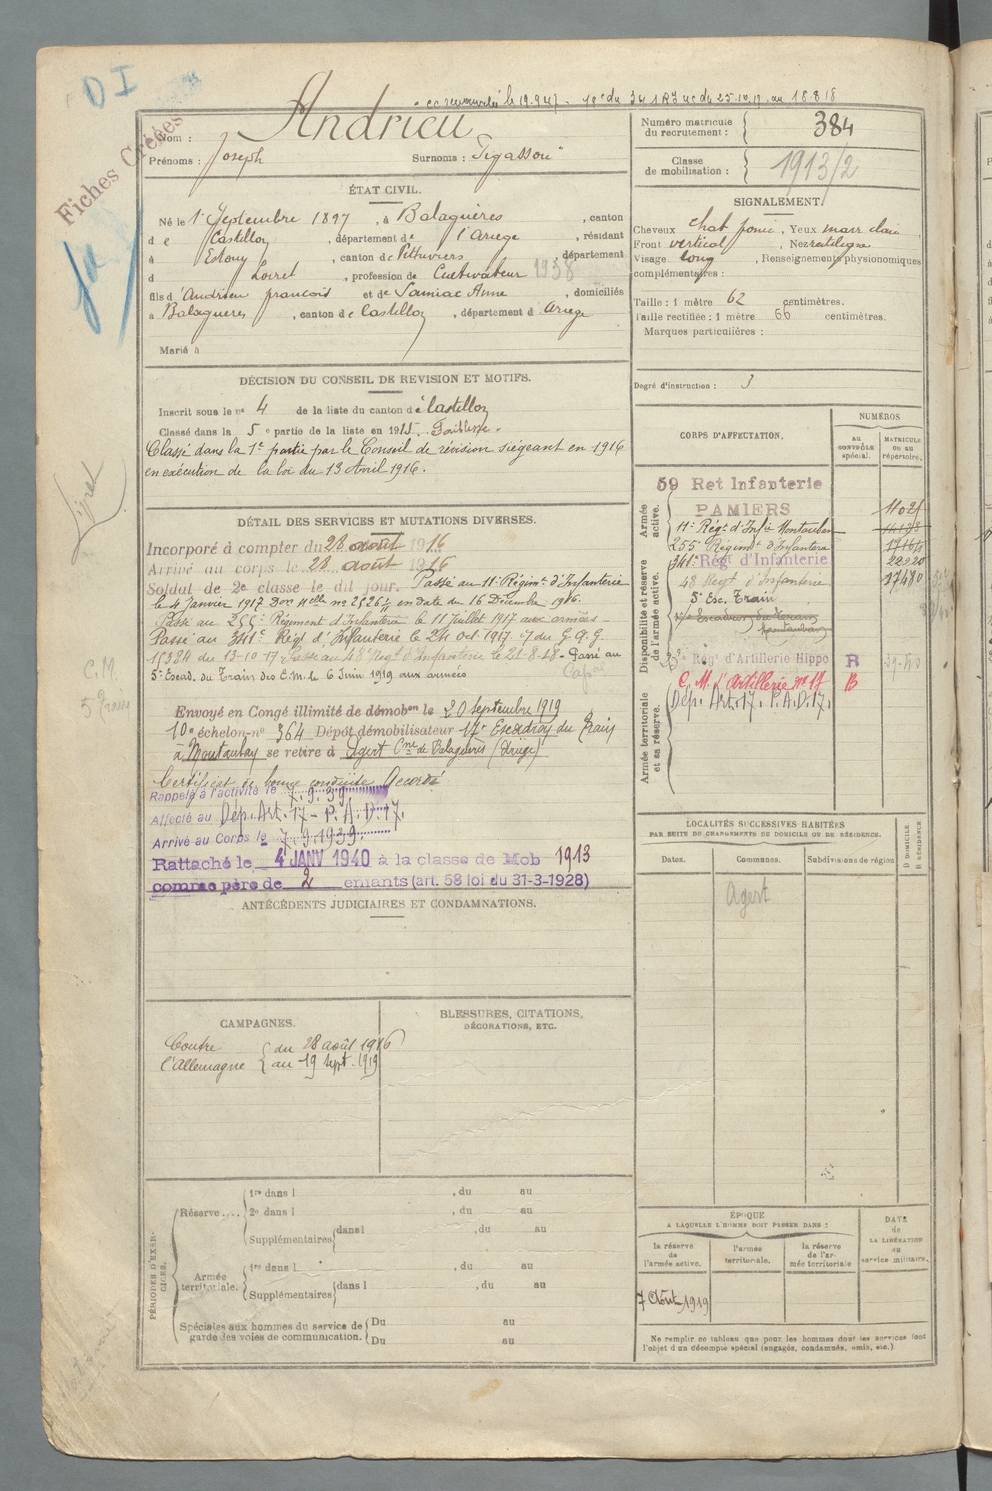 D I
cc renouvelée le 19.9.47 - 10e du 341 R I ... du 25.10.17 au 18.8.18
Fiches Créées
Nom : Andrieu
Prénoms : Joseph Surnoms : "Tigassou"
Numéro matricule du recrutement : 384
Classe de mobilisation : 1913/2
ÉTAT CIVIL.
Né le 1er Septembre 1897, à Balaguères, canton
de Castillon, département de l'Ariège, résidant
à Estouy, canton de Pithiviers, département
d Loiret, profession de Cultivateur 1938
fils d'Andrieu françois et de Samiac Anne, domiciliés
à Balaguères, canton de Castillon, département d Ariège
Marié à
SIGNALEMENT.
Cheveux chat foncé, Yeux marr clair
Front vertical, Nez rectiligne
Visage long, Renseignements physionomiques
complémentaires :
Taille : 1 mètre 62 centimètres.
Taille rectifiée : 1 mètre 66 centimètres.
Marques particulières :
Degré d'instruction : 3
DÉCISION DU CONSEIL DE REVISION ET MOTIFS.
Inscrit sous le no 4 de la liste du canton de Castillon
Classé dans la 5e partie de la liste en 1915. Faiblesse.
Classé dans la 1e partie par le Conseil de révision siégeant en 1916
en exécution de la loi du 13 Avril 1916.
DÉTAIL DES SERVICES ET MUTATIONS DIVERSES.
Incorporé à compter du 28 août 1916
Arrivé au corps le 28 août 1916
Soldat de 2e classe le dit jour. Passé au 11e Régimt d'Infanterie
le 4 Janvier 1917 Don Melle no 2526 en date du 16 Décembre 1916.
Passé au 255e Régiment d'Infanterie le 11 Juillet 1917 aux armées -
Passé au 341e Régt d'Infanterie le 24 Oct. 1917 of du G.Q.G
15384 du 13-10-17 - Passé au 48e Regt d'Infanterie le 21-8-18 - Passé au
5e Escad. du Train des E.M. le 6 Juin 1919 aux armées
Envoyé en Congé illimité de démobon le 20 septembre 1919
10e échelon no 364 Dépôt démobilisateur 17e Escadron du Train
à Montauban se retire à Agert Cne de Balaguères (Ariège)
Certificat de bonne conduite Accordé
Rappelé à l'activité le 7.9.39
Affecté au Dép. Art. 17 - P.A.D. 17.
Arrivé au Corps le 7.9.1939
Rattaché le 4 JANV 1940 à la classe de Mob 1913
comme père de 2 enfants (art. 58 loi du 31-3-1928)
C.M.
CORPS D'AFFECTATION.
NUMÉROS
AU CONTRÔLE spécial.
MATRICULE OU AU RÉPERTOIRE.
Armée active.
Disponibilité et réserve de l'armée active.
Armée territoriale et sa réserve.
59 Ret Infanterie
PAMIERS 11021
11e Régt d'Infie Montauban
255e Régimt d'Infanterie
341e Régt d'Infanterie 22920
48 Regt d'Infanterie 17480
5e Esc. Train
17e Escadron du Train
Montauban
23e Régt d'Artillerie Hippo R
C.M. d'Artillerie no 17 B
Dép. Art. 17. P.A.D. 17.
LOCALITÉS SUCCESSIVES HABITÉES
PAR SUITE DE CHANGEMENTS DE DOMICILE OU DE RÉSIDENCE.
Dates. Communes. Subdivisions de région D DOMICILE R RÉSIDENCE
Agert
ANTÉCÉDENTS JUDICIAIRES ET CONDAMNATIONS.
CAMPAGNES.
Contre l'Allemagne
du 28 août 1916
au 19 Sept. 1919
BLESSURES, CITATIONS,
DÉCORATIONS, ETC.
PÉRIODES D'EXERCICES.
Réserve....
1re dans l , du au
2e dans l , du au
Supplémentaires dans l , du au
Armée territoriale.
1re dans l , du au
Supplémentaires dans l , du au
Spéciales aux hommes du service de garde des voies de communication.
Du au
Du au
ÉPOQUE
A LAQUELLE L'HOMME DOIT PASSER DANS :
la réserve de l'armée active.
l'armée territoriale.
la réserve de l'armée territoriale
DATE de LA LIBÉRATION du service militaire.
7 Août 1919
Ne remplir ce tableau que pour les hommes dont les services font
l'objet d'un décompte spécial (engagés, condamnés, omis, etc.).